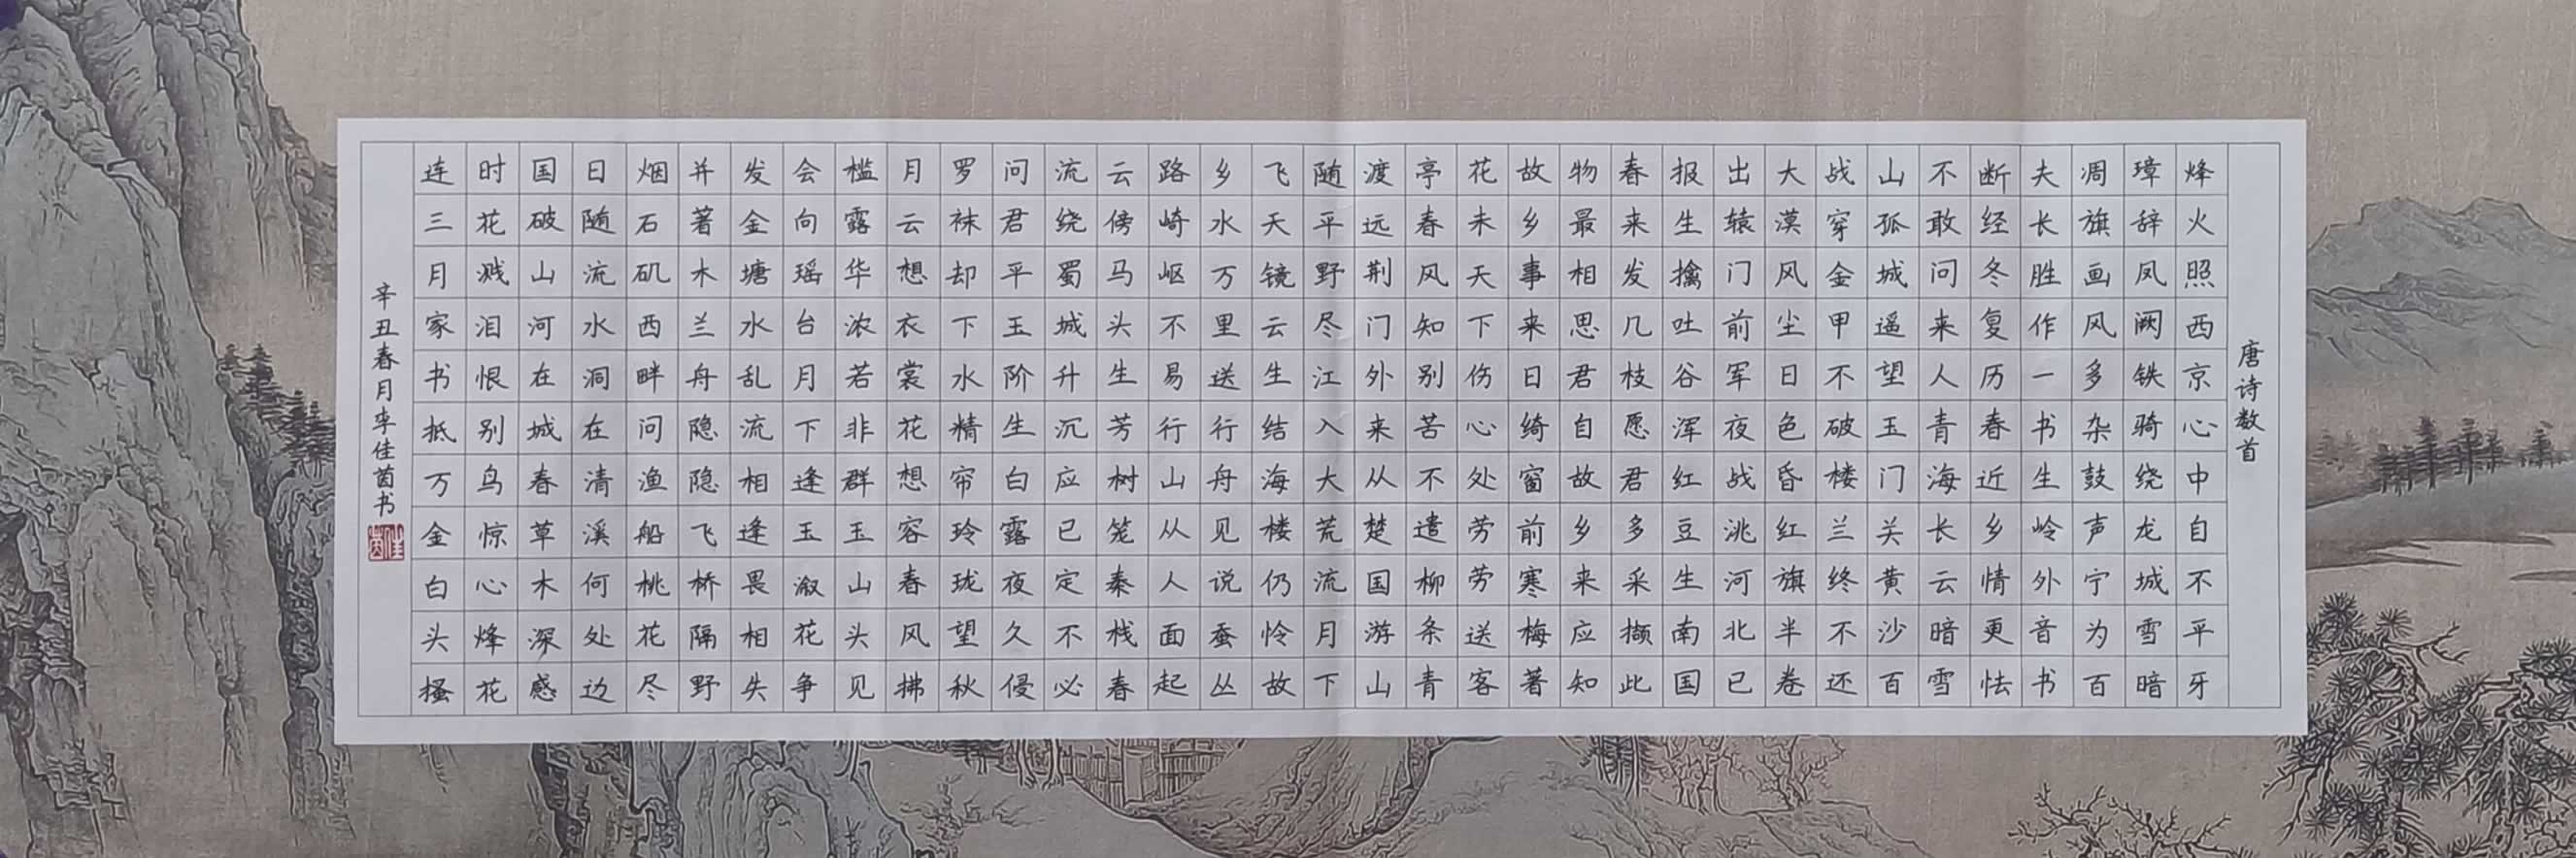 唐诗数首
烽火照西京心中自不平牙
璋辞凤阙铁骑绕龙城雪暗
凋旗画风多杂鼓声宁为百
夫长胜作一书生岭外音书
断经冬复历春近乡情更怯
不敢问来人青海长云暗雪
山孤城遥望玉门关黄沙百
战穿金甲不破楼兰终不还
大漠风尘日色昏红旗半卷
出辕门前军夜战洮河北已
报生擒吐谷浑红豆生南国
春来发几枝愿君多采撷此
物最相思君自故乡来应知
故乡事来日绮窗前寒梅著
花未天下伤心处劳劳送客
亭春风知别苦不遣柳条青
渡远荆门外来从楚国游山
随平野尽江入大荒流月下
飞天镜云生结海楼仍怜故
乡水万里送行舟见说蚕丛
路崎岖不易行山从人面起
云傍马头生芳树笼秦栈春
流绕蜀城升沉应已定不必
问君平玉阶生白露夜久侵
罗袜却下水精帘玲珑望秋
月云想衣裳花想容春风拂
槛露华浓若非群玉山头见
会向瑶台月下逢玉溆花争
发金塘水乱流相逢畏相失
并著木兰舟隐隐飞桥隔野
烟石矶西畔问渔船桃花尽
日随流水洞在清溪何处边
国破山河在城春草木深感
时花溅泪恨别鸟惊心烽花
连三月家书抵万金白头搔
辛丑春月李佳茵书
佳茵